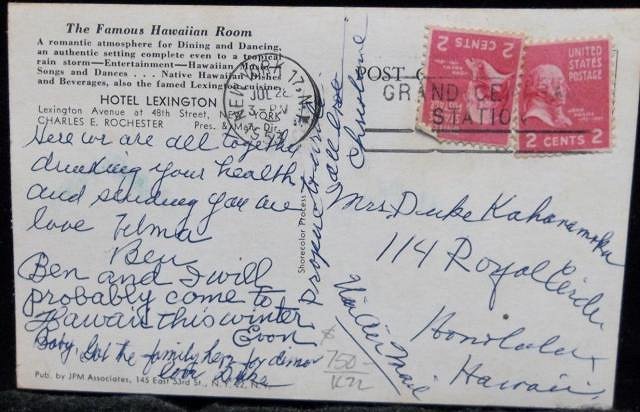 The Famous Hawaiian Room
A romantic atmosphere for Dining and Dancing,
an authentic setting complete even to a tropical
rain storm—Entertainment—Hawaiian
Songs and Dances . . . Native Hawaiian Dishes
and Beverages, also the famed Lexington cuisine.
HOTEL LEXINGTON
Lexington Avenue at 48th Street, NEW YORK
CHARLES E. ROCHESTER Pres. & Man. Dir.
NEW YORK 17, N.Y.
JUL 28
POST
GRAND CE
STATION
2 CENTS 2
UNITED
STATES
POSTAGE
2 CENTS 2
Here we are all together
drinking your health
and sending you are
love Velma
Ben
Ben and I will
probably come to
Hawaii this winter
Evon
Baby, got the family here for dinner
love Duke
Christone
Shorecolor Process
Mrs. Duke Kahanamoku
114 Royal Circle
Honolulu
Hawaii
Via Air Mail
750-
K22
Pub. by JPM Associates, 145 East 53rd St., N.Y. 22, N.Y.